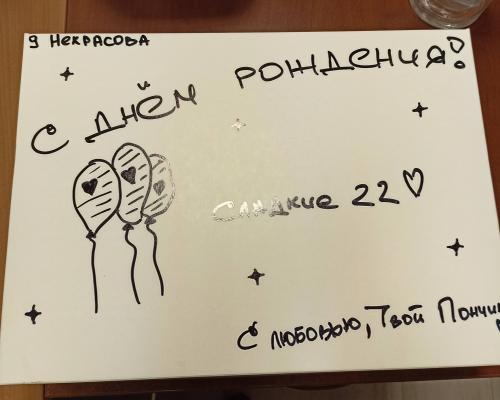 9 НЕКРАСОВА
С ДНЁМ РОЖДЕНИЯ!
СЛАДКИЕ 22♡
С ЛЮБОВЬЮ, ТВОЙ